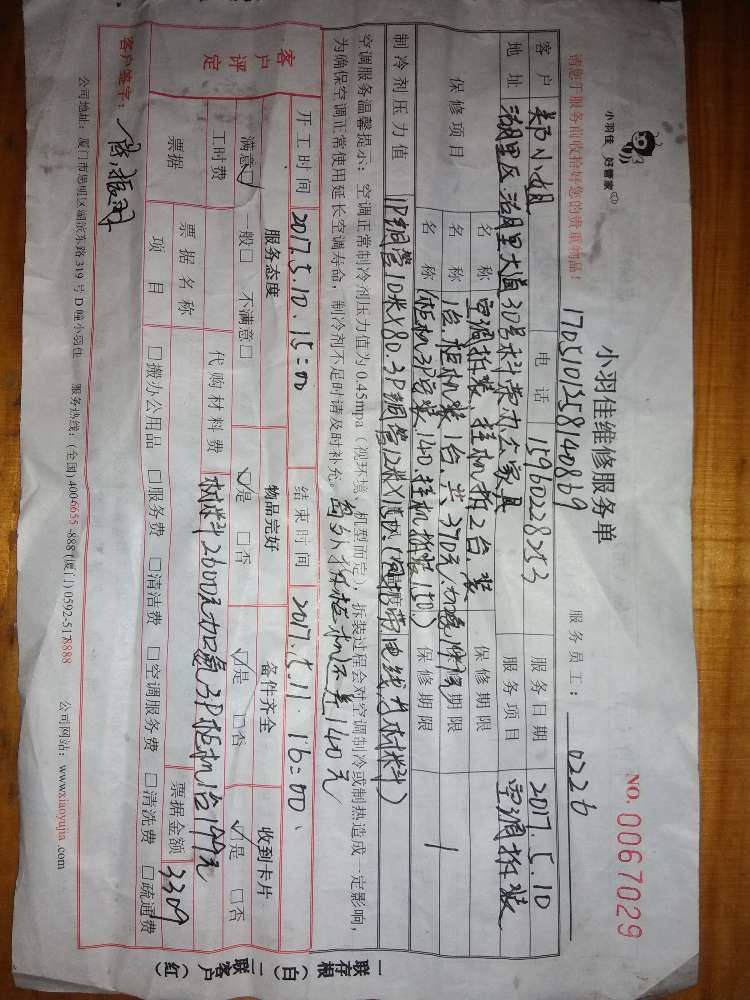 小羽佳 好管家
请您于服务前收拾好您的贵重物品！
小羽佳维修服务单
NO. 0067029
1705101358140869
服务员工： 0226
客户 郑小姐 电话 15960228253 服务日期 2017.5.10
地址 湖里区湖里大道30号科荣办公家具 服务项目 空调拆装
保修项目 名称 空调拆装 挂机拆2台.装 保修期限
名称 1台.柜机装1台.共370元 保修期限
名称 (柜机3P安装140.挂机拆装150) 保修期限
制冷剂压力值 1P铜管10米X80.3P铜管12米X150. 电线为材料)
空调服务温馨提示：空调正常制冷剂压力值为0.45mpa（视环境、机型而定），拆装过程会对空调制冷或制热造成一定影响，
为确保空调正常使用延长空调寿命，制冷剂不足时请及时补充。另外拆柜机 140元
客户评定
开工时间 2017.5.10.15:00 结束时间 2017.5.11.16:00
服务态度 物品完好 备件齐全 收到卡片
满意☑ 一般□ 不满意□ ☑是 □否 ☑是 □否 ☑是 □否
工时费 代购材料费 材料2600元加氨3P柜机1台199元
票据 票据名称 票据金额 3309
项目 □搬办公用品 □服务费 □清洁费 □空调服务费 □清洗费 □疏通费
客户签字：
公司地址：厦门市思明区湖滨东路319号D幢小羽佳 服务热线：(全国)400-6655-888 (厦门)0592-5178888 公司网站：www.xiaoyujia.com
一联存根（白）二联客户（红）